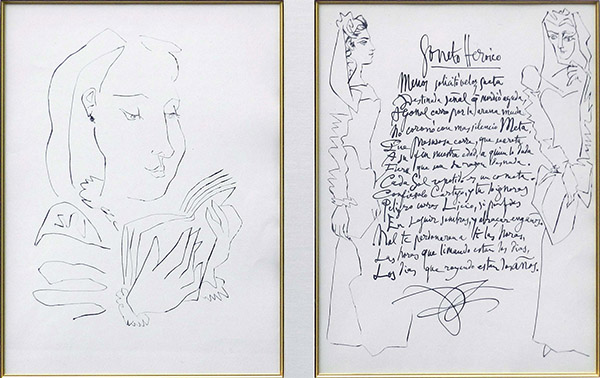 Soneto Heroico
Menos solicitó veloz saeta
Destinada señal q mordió aguda,
Agonal carro por la arena muda
No coronó con mas silencio Meta,
Que presurosa corre, que secreta
A su fin nuestra edad, a quien lo duda
Fiera que sea de razon desnuda.
Cada Sol repetido es un cometa.
Confiesalo Cartago, y tu lo ignoras
Peligro corres Licio, si porfias
En seguir sombras, y abraçar engaños.
Mal te perdonaran a ti las horas
Las horas que limando estan los dias,
Los dias que royendo estan los años.